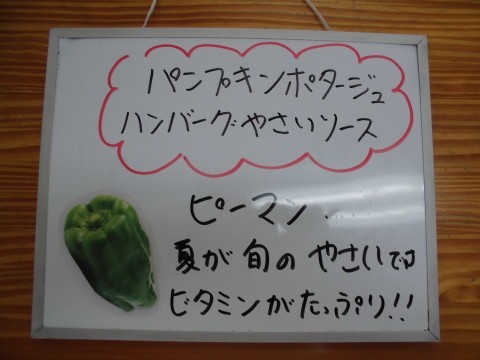 パンプキンポタージュ
ハンバーグやさいソース
ピーマン....
夏が旬のやさいです
ビタミンがたっぷり!!